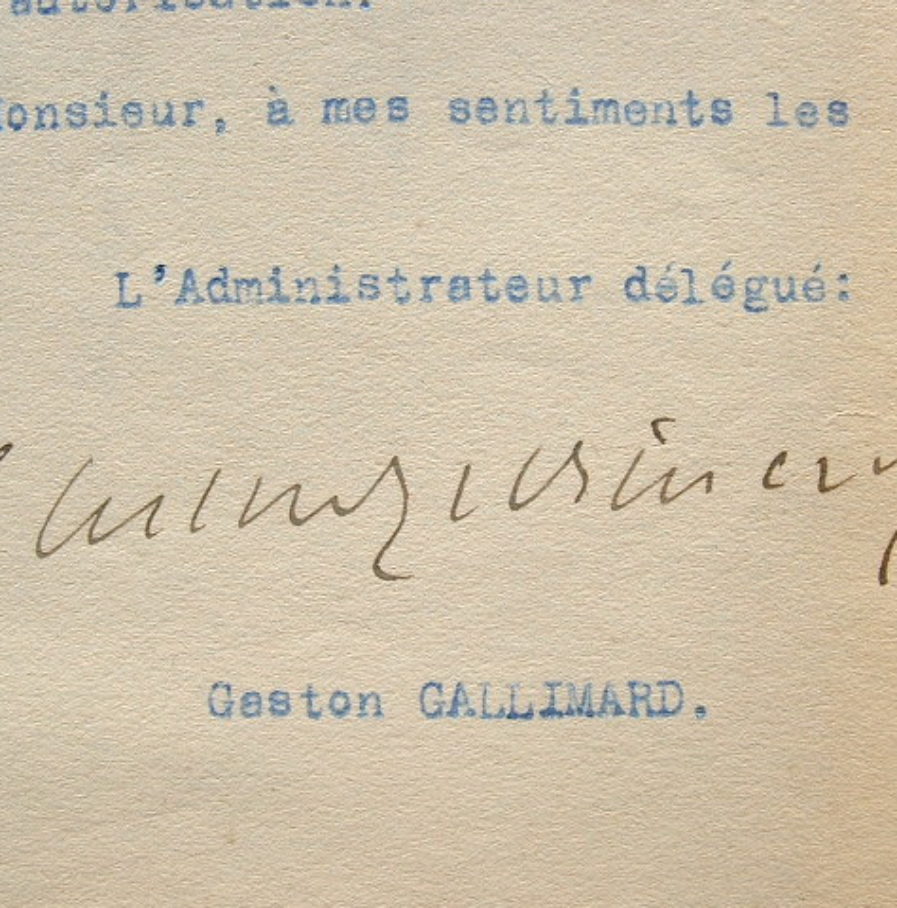 autorisation.
Monsieur, à mes sentiments les
L'Administrateur délégué:
Gaston GALLIMARD.